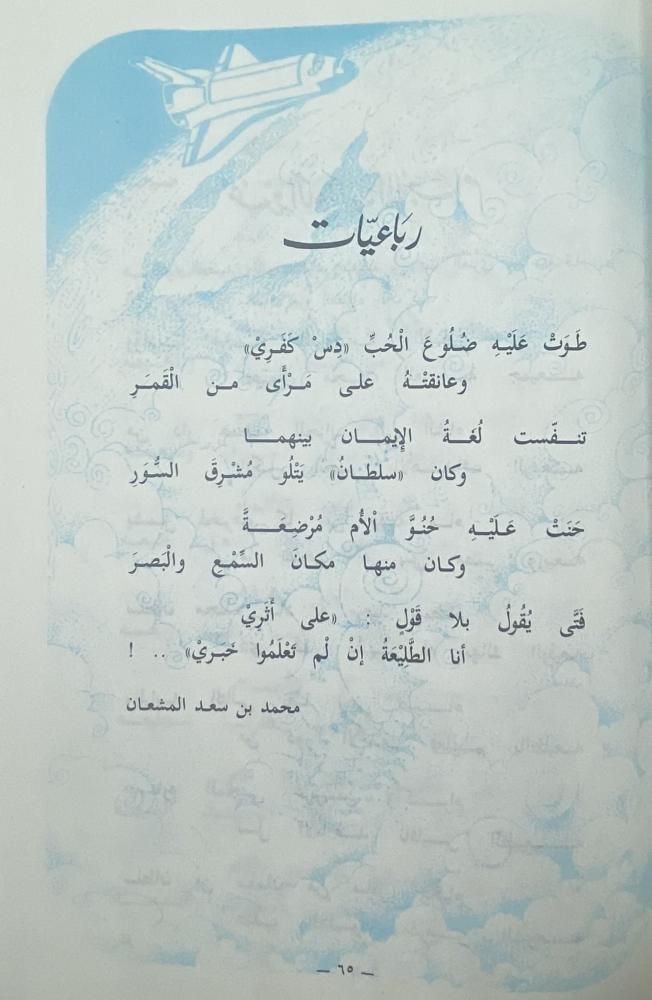 رباعيّات
طَوَتْ عَلَيْهِ ضُلُوعَ الْحُبِّ «دِسْ كَفَرِيْ»
وعانقتْهُ على مَرْأَى من الْقَمَرِ
تنفّست لُغَةُ الإِيمان بينهما
وكان «سلطانُ» يَتْلُو مُشْرِقَ السُّوَرِ
حَنَتْ عَلَيْهِ حُنُوَّ الْأُم مُرْضِعَةً
وكان منها مكانَ السِّمْعِ والْبَصرَ
فَتَى يُقُولُ بلا قَوْلٍ : «على أَثَرِيْ
أنا الطَّلِيْعَةُ إنْ لْم تَعْلَمُوا خَبريْ» .. !
محمد بن سعد المشعان
— ٦٥ —